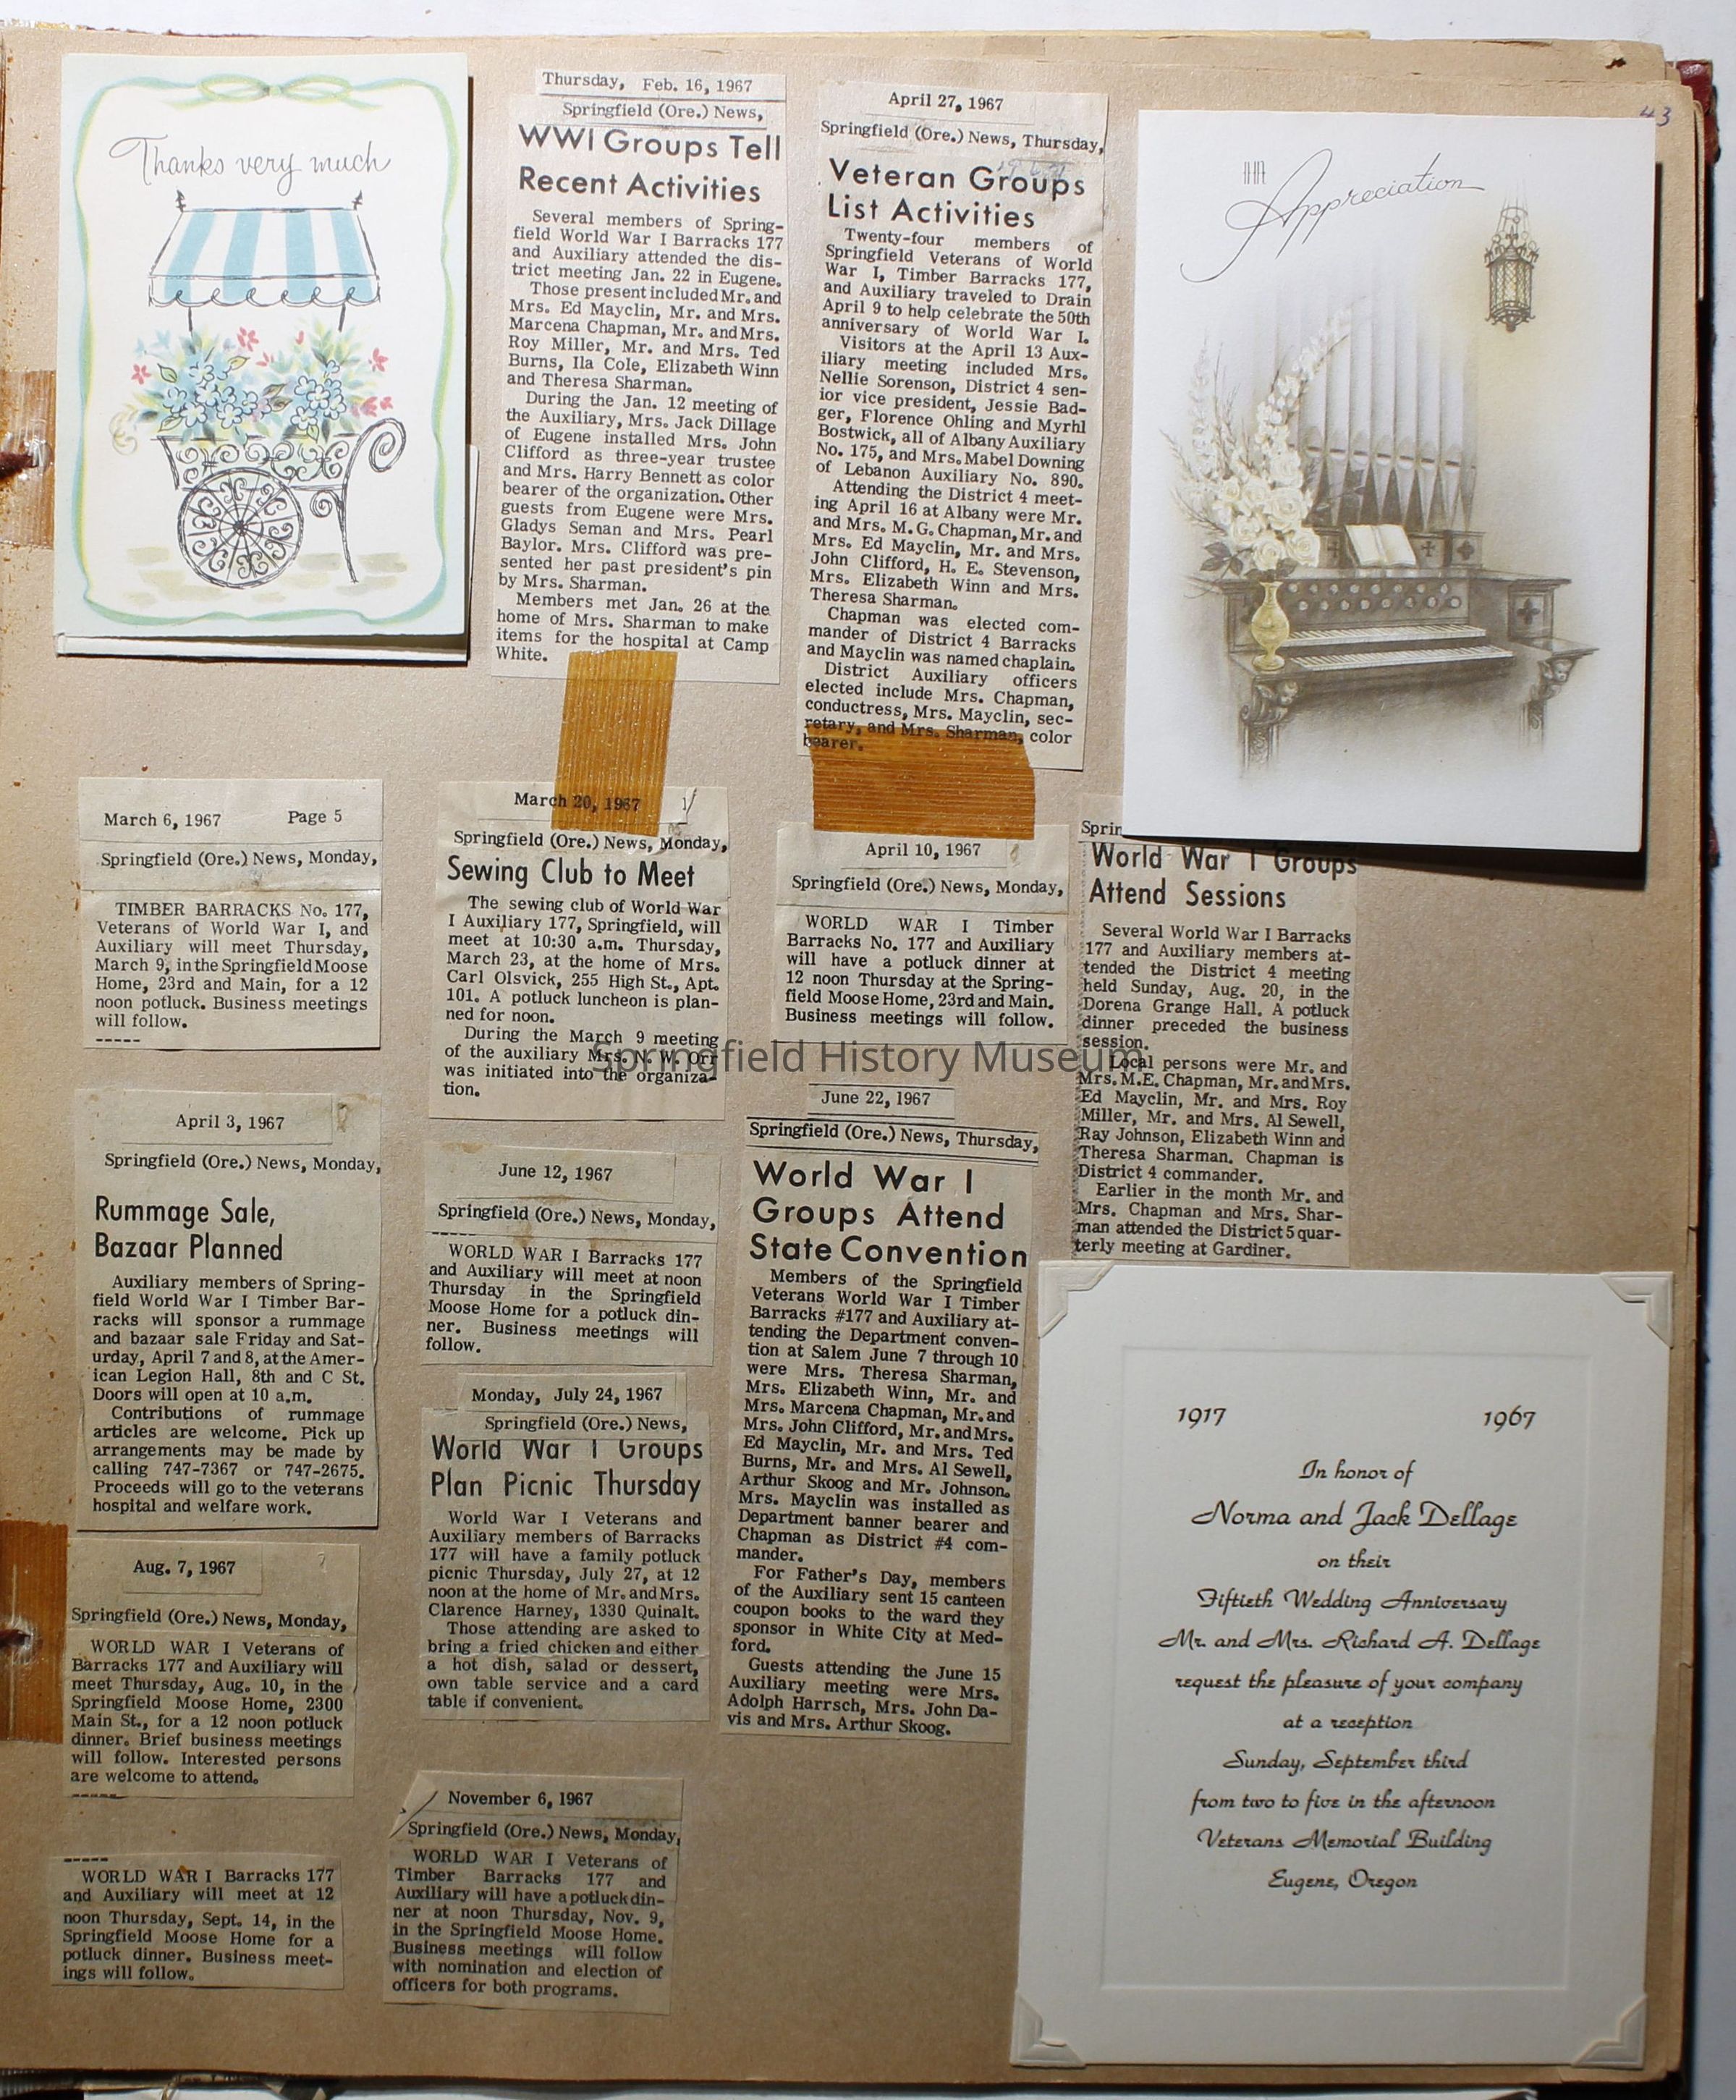 43
Thanks very much
Thursday, Feb. 16, 1967
Springfield (Ore.) News,
WWI Groups Tell
Recent Activities
Several members of Spring-
field World War I Barracks 177
and Auxiliary attended the dis-
trict meeting Jan. 22 in Eugene.
Those present included Mr. and
Mrs. Ed Mayclin, Mr. and Mrs.
Marcena Chapman, Mr. and Mrs.
Roy Miller, Mr. and Mrs. Ted
Burns, Ila Cole, Elizabeth Winn
and Theresa Sharman.
During the Jan. 12 meeting of
the Auxiliary, Mrs. Jack Dillage
of Eugene installed Mrs. John
Clifford as three-year trustee
and Mrs. Harry Bennett as color
bearer of the organization. Other
guests from Eugene were Mrs.
Gladys Seman and Mrs. Pearl
Baylor. Mrs. Clifford was pre-
sented her past president's pin
by Mrs. Sharman.
Members met Jan. 26 at the
home of Mrs. Sharman to make
items for the hospital at Camp
White.
April 27, 1967
Springfield (Ore.) News, Thursday,
Veteran Groups
List Activities
Twenty-four members of
Springfield Veterans of World
War I, Timber Barracks 177,
and Auxiliary traveled to Drain
April 9 to help celebrate the 50th
anniversary of World War I.
Visitors at the April 13 Aux-
iliary meeting included Mrs.
Nellie Sorenson, District 4 sen-
ior vice president, Jessie Bad-
ger, Florence Ohling and Myrhl
Bostwick, all of Albany Auxiliary
No. 175, and Mrs. Mabel Downing
of Lebanon Auxiliary No. 890.
Attending the District 4 meet-
ing April 16 at Albany were Mr.
and Mrs. M. G. Chapman, Mr. and
Mrs. Ed Mayclin, Mr. and Mrs.
John Clifford, H. E. Stevenson,
Mrs. Elizabeth Winn and Mrs.
Theresa Sharman.
Chapman was elected com-
mander of District 4 Barracks
and Mayclin was named chaplain.
District Auxiliary officers
elected include Mrs. Chapman,
conductress, Mrs. Mayclin, sec-
retary, and Mrs. Sharman, color
bearer.
With
Appreciation
March 6, 1967 Page 5
Springfield (Ore.) News, Monday,
TIMBER BARRACKS No. 177,
Veterans of World War I, and
Auxiliary will meet Thursday,
March 9, in the Springfield Moose
Home, 23rd and Main, for a 12
noon potluck. Business meetings
will follow.
March 20, 1967
Springfield (Ore.) News, Monday,
Sewing Club to Meet
The sewing club of World War
I Auxiliary 177, Springfield, will
meet at 10:30 a.m. Thursday,
March 23, at the home of Mrs.
Carl Olsvick, 255 High St., Apt.
101. A potluck luncheon is plan-
ned for noon.
During the March 9 meeting
of the auxiliary Mrs. N. W. Orr
was initiated into the organiza-
tion.
April 10, 1967
Springfield (Ore.) News, Monday,
WORLD WAR I Timber
Barracks No. 177 and Auxiliary
will have a potluck dinner at
12 noon Thursday at the Spring-
field Moose Home, 23rd and Main.
Business meetings will follow.
Sprin
World War I Groups
Attend Sessions
Several World War I Barracks
177 and Auxiliary members at-
tended the District 4 meeting
held Sunday, Aug. 20, in the
Dorena Grange Hall. A potluck
dinner preceded the business
session.
Local persons were Mr. and
Mrs. M.E. Chapman, Mr. and Mrs.
Ed Mayclin, Mr. and Mrs. Roy
Miller, Mr. and Mrs. Al Sewell,
Ray Johnson, Elizabeth Winn and
Theresa Sharman. Chapman is
District 4 commander.
Earlier in the month Mr. and
Mrs. Chapman and Mrs. Shar-
man attended the District 5 quar-
terly meeting at Gardiner.
Springfield History Museum
April 3, 1967
Springfield (Ore.) News, Monday,
Rummage Sale,
Bazaar Planned
Auxiliary members of Spring-
field World War I Timber Bar-
racks will sponsor a rummage
and bazaar sale Friday and Sat-
urday, April 7 and 8, at the Amer-
ican Legion Hall, 8th and C St.
Doors will open at 10 a.m.
Contributions of rummage
articles are welcome. Pick up
arrangements may be made by
calling 747-7367 or 747-2675.
Proceeds will go to the veterans
hospital and welfare work.
June 12, 1967
Springfield (Ore.) News, Monday,
WORLD WAR I Barracks 177
and Auxiliary will meet at noon
Thursday in the Springfield
Moose Home for a potluck din-
ner. Business meetings will
follow.
Monday, July 24, 1967
Springfield (Ore.) News,
World War I Groups
Plan Picnic Thursday
World War I Veterans and
Auxiliary members of Barracks
177 will have a family potluck
picnic Thursday, July 27, at 12
noon at the home of Mr. and Mrs.
Clarence Harney, 1330 Quinalt.
Those attending are asked to
bring a fried chicken and either
a hot dish, salad or dessert,
own table service and a card
table if convenient.
June 22, 1967
Springfield (Ore.) News, Thursday,
World War I
Groups Attend
State Convention
Members of the Springfield
Veterans World War I Timber
Barracks #177 and Auxiliary at-
tending the Department conven-
tion at Salem June 7 through 10
were Mrs. Theresa Sharman,
Mrs. Elizabeth Winn, Mr. and
Mrs. Marcena Chapman, Mr. and
Mrs. John Clifford, Mr. and Mrs.
Ed Mayclin, Mr. and Mrs. Ted
Burns, Mr. and Mrs. Al Sewell,
Arthur Skoog and Mr. Johnson.
Mrs. Mayclin was installed as
Department banner bearer and
Chapman as District #4 com-
mander.
For Father's Day, members
of the Auxiliary sent 15 canteen
coupon books to the ward they
sponsor in White City at Med-
ford.
Guests attending the June 15
Auxiliary meeting were Mrs.
Adolph Harrsch, Mrs. John Da-
vis and Mrs. Arthur Skoog.
Aug. 7, 1967
Springfield (Ore.) News, Monday,
WORLD WAR I Veterans of
Barracks 177 and Auxiliary will
meet Thursday, Aug. 10, in the
Springfield Moose Home, 2300
Main St., for a 12 noon potluck
dinner. Brief business meetings
will follow. Interested persons
are welcome to attend.
WORLD WAR I Barracks 177
and Auxiliary will meet at 12
noon Thursday, Sept. 14, in the
Springfield Moose Home for a
potluck dinner. Business meet-
ings will follow.
November 6, 1967
Springfield (Ore.) News, Monday,
WORLD WAR I Veterans of
Timber Barracks 177 and
Auxiliary will have a potluck din-
ner at noon Thursday, Nov. 9,
in the Springfield Moose Home.
Business meetings will follow
with nomination and election of
officers for both programs.
1917 1967
In honor of
Norma and Jack Dellage
on their
Fiftieth Wedding Anniversary
Mr. and Mrs. Richard A. Dellage
request the pleasure of your company
at a reception
Sunday, September third
from two to five in the afternoon
Veterans Memorial Building
Eugene, Oregon